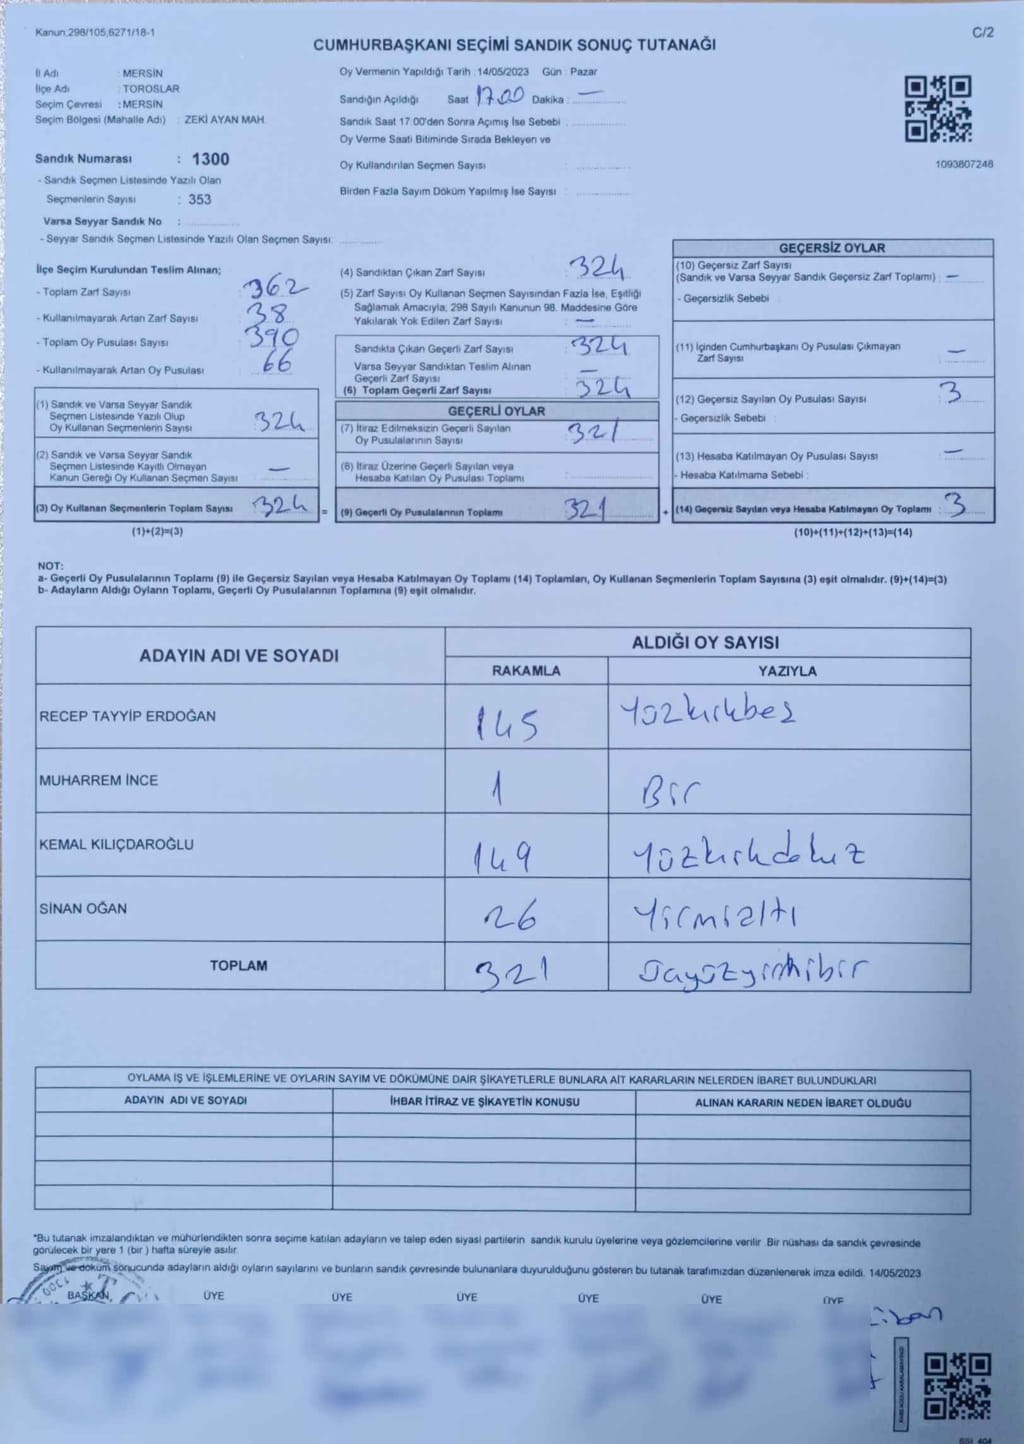 Kanun;298/105,6271/18-1
C/2
CUMHURBAŞKANI SEÇİMİ SANDIK SONUÇ TUTANAĞI
İl Adı : MERSİN
İlçe Adı : TOROSLAR
Seçim Çevresi : MERSİN
Seçim Bölgesi (Mahalle Adı) : ZEKİ AYAN MAH.
Sandık Numarası : 1300
- Sandık Seçmen Listesinde Yazılı Olan
Seçmenlerin Sayısı : 353
Varsa Seyyar Sandık No :
- Seyyar Sandık Seçmen Listesinde Yazılı Olan Seçmen Sayısı:
Oy Vermenin Yapıldığı Tarih : 14/05/2023 Gün : Pazar
Sandığın Açıldığı Saat 17.00 Dakika : —
Sandık Saat 17:00'den Sonra Açımış İse Sebebi :
Oy Verme Saati Bitiminde Sırada Bekleyen ve
Oy Kullandırılan Seçmen Sayısı :
Birden Fazla Sayım Döküm Yapılmış İse Sayısı :
1093807248
İlçe Seçim Kurulundan Teslim Alınan;
- Toplam Zarf Sayısı : 362
- Kullanılmayarak Artan Zarf Sayısı : 38
- Toplam Oy Pusulası Sayısı : 390
- Kullanılmayarak Artan Oy Pusulası : 66
(1) Sandık ve Varsa Seyyar Sandık
Seçmen Listesinde Yazılı Olup
Oy Kullanan Seçmenlerin Sayısı : 324
(2) Sandık ve Varsa Seyyar Sandık
Seçmen Listesinde Kayıtlı Olmayan
Kanun Gereği Oy Kullanan Seçmen Sayısı : —
(3) Oy Kullanan Seçmenlerin Toplam Sayısı : 324 =
(1)+(2)=(3)
(4) Sandıktan Çıkan Zarf Sayısı : 324
(5) Zarf Sayısı Oy Kullanan Seçmen Sayısından Fazla İse, Eşitliği
Sağlamak Amacıyla, 298 Sayılı Kanunun 98. Maddesine Göre
Yakılarak Yok Edilen Zarf Sayısı : —
Sandıkta Çıkan Geçerli Zarf Sayısı : 324
Varsa Seyyar Sandıktan Teslim Alınan
Geçerli Zarf Sayısı : —
(6) Toplam Geçerli Zarf Sayısı : 324
GEÇERLİ OYLAR
(7) İtiraz Edilmeksizin Geçerli Sayılan
Oy Pusulalarının Sayısı : 321
(8) İtiraz Üzerine Geçerli Sayılan veya
Hesaba Katılan Oy Pusulası Toplamı :
(9) Geçerli Oy Pusulalarının Toplamı : 321 +
GEÇERSİZ OYLAR
(10) Geçersiz Zarf Sayısı
(Sandık ve Varsa Seyyar Sandık Geçersiz Zarf Toplamı) : —
- Geçersizlik Sebebi :
(11) İçinden Cumhurbaşkanı Oy Pusulası Çıkmayan
Zarf Sayısı : —
(12) Geçersiz Sayılan Oy Pusulası Sayısı : 3
- Geçersizlik Sebebi :
(13) Hesaba Katılmayan Oy Pusulası Sayısı : —
- Hesaba Katılmama Sebebi :
(14) Geçersiz Sayılan veya Hesaba Katılmayan Oy Toplamı : 3
(10)+(11)+(12)+(13)=(14)
NOT:
a- Geçerli Oy Pusulalarının Toplamı (9) ile Geçersiz Sayılan veya Hesaba Katılmayan Oy Toplamı (14) Toplamları, Oy Kullanan Seçmenlerin Toplam Sayısına (3) eşit olmalıdır. (9)+(14)=(3)
b- Adayların Aldığı Oyların Toplamı, Geçerli Oy Pusulalarının Toplamına (9) eşit olmalıdır.
ADAYIN ADI VE SOYADI
ALDIĞI OY SAYISI
RAKAMLA YAZIYLA
RECEP TAYYİP ERDOĞAN 145 Yüzkırkbeş
MUHARREM İNCE 1 Bir
KEMAL KILIÇDAROĞLU 149 Yüzkırkdokuz
SİNAN OĞAN 26 Yirmialtı
TOPLAM 321
OYLAMA İŞ VE İŞLEMLERİNE VE OYLARIN SAYIM VE DÖKÜMÜNE DAİR ŞİKAYETLERLE BUNLARA AİT KARARLARIN NELERDEN İBARET BULUNDUKLARI
ADAYIN ADI VE SOYADI İHBAR İTİRAZ VE ŞİKAYETİN KONUSU ALINAN KARARIN NEDEN İBARET OLDUĞU
*Bu tutanak imzalandıktan ve mühürlendikten sonra seçime katılan adayların ve talep eden siyasi partilerin sandık kurulu üyelerine veya gözlemcilerine verilir .Bir nüshası da sandık çevresinde
görülecek bir yere 1 (bir ) hafta süreyle asılır.
Sayım ve döküm sonucunda adayların aldığı oyların sayılarını ve bunların sandık çevresinde bulunanlara duyurulduğunu gösteren bu tutanak tarafımızdan düzenlenerek imza edildi. 14/05/2023
1300
BAŞKAN ÜYE ÜYE ÜYE ÜYE ÜYE ÜYE